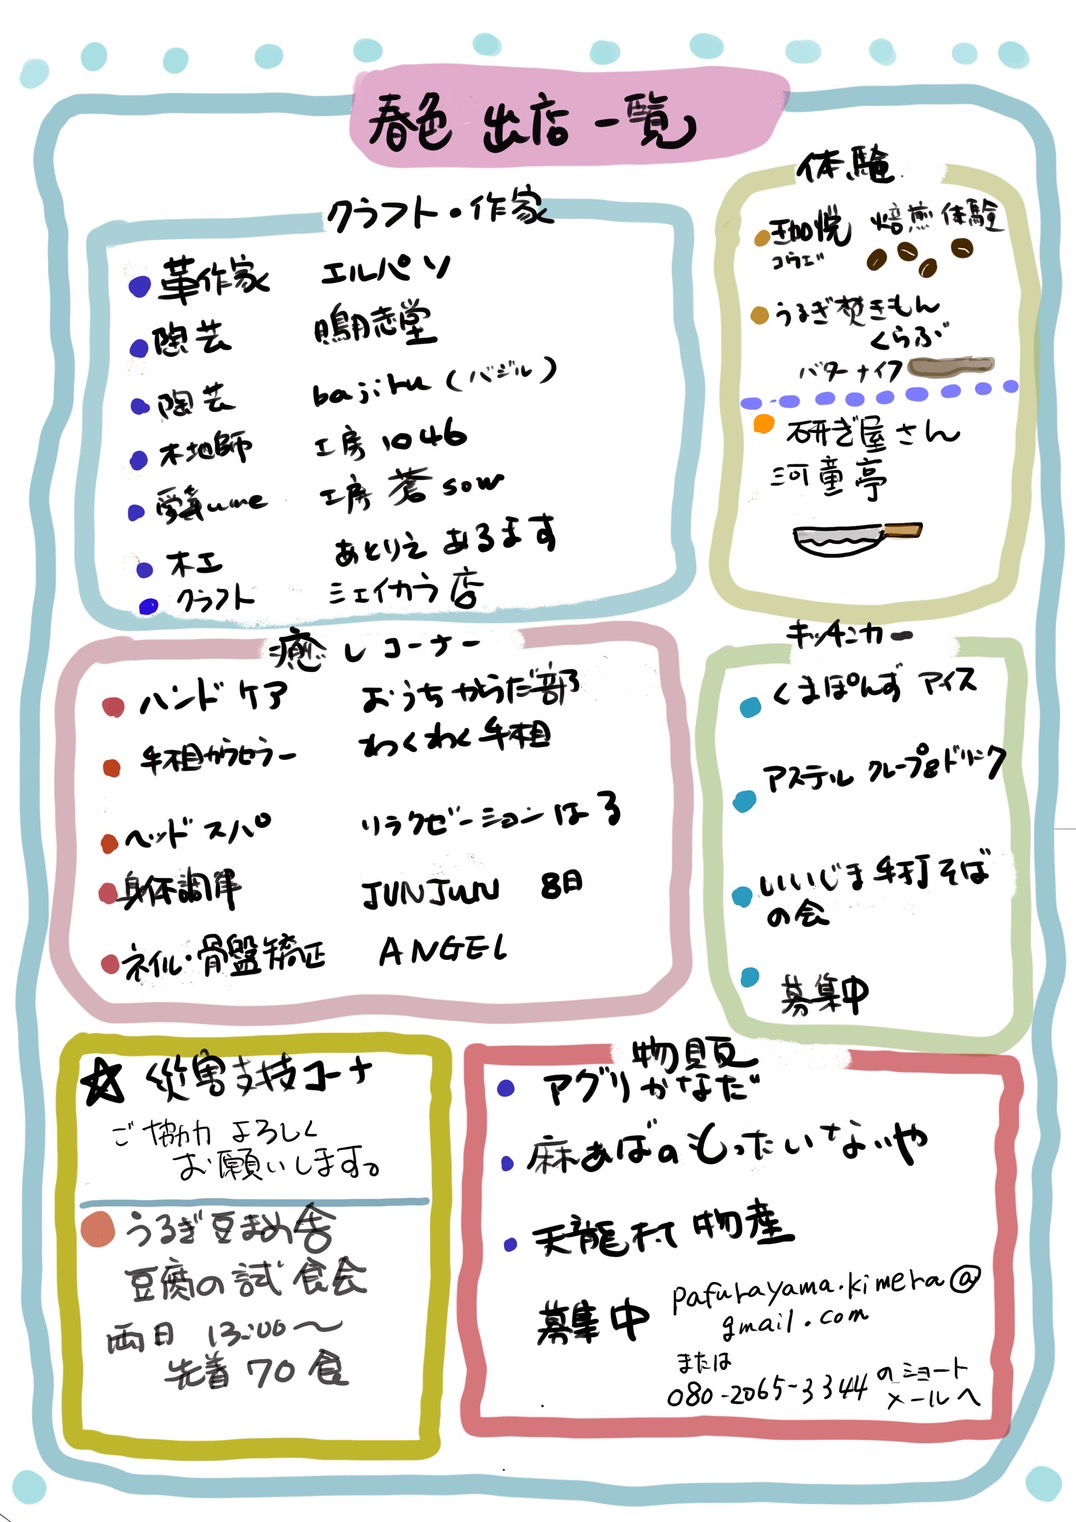 春色 出店一覧
クラフト・作家
革作家 エルパソ
陶芸 鳴志堂
陶芸 bajiru（バジル）
木地師 工房1046
ume 工房 蒼 sow
木工 あとりえ あるます
クラフト シェイカラ店
体験
珈悦 焙煎体験
コウエツ
うるぎ焚きもん
くらぶ
バターナイフ
研ぎ屋さん
河童亭
癒しコーナー
ハンドケア おうちからだ部
手相カウセラー わくわく手相
ヘッドスパ リラクゼーションはる
身体調律 JUNJUN 8日
ネイル・骨盤矯正 ANGEL
キッチンカー
くまぽんず アイス
アステル クレープ&ドリンク
いいじま手打そば
の会
募集中
☆災害支援コーナ
ご協力よろしく
お願いします。
うるぎ豆まめ舎
豆腐の試食会
両日 13:00〜
先着70食
物販
アグリかなだ
麻あばのもったいないや
天龍村物産
募集中 pafurayama.kimera@
gmail.com
または
080-2065-3344のショート
メールへ